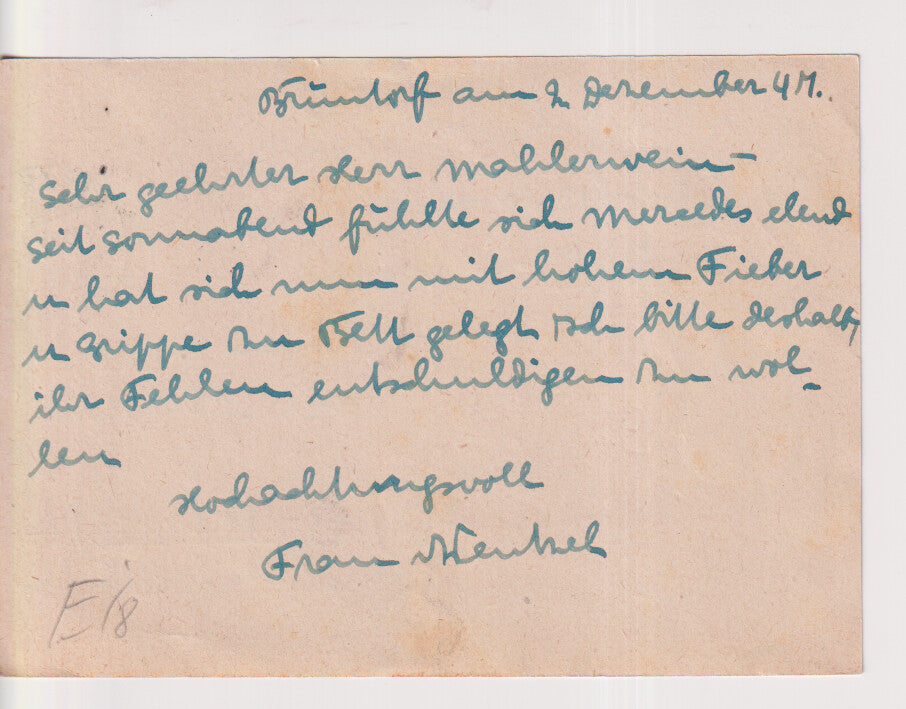 Brüntorf am 2 Dezember 47.
Sehr geehrter Herr Mahlerwein –
Seit Sonnabend fühlte sich Mercedes elend
u hat sich nun mit hohem Fieber
u Grippe zu Bett gelegt Ich bitte deshalb,
ihr Fehlen entschuldigen zu wol-
len
Hochachtungsvoll
Frau Wentzel
E/8